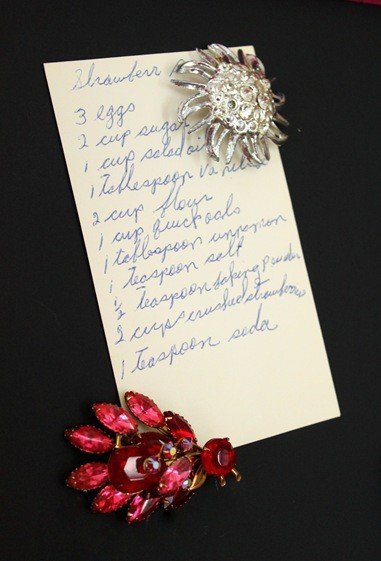 Strawberr
3 eggs
2 cup sugar
1 cup salad oil
1 tablespoon
2 cup flour
1 cup quick oats
1 tablespoon cinnamon
1 Teaspoon salt
1/2 Teaspoon baking powder
2 cups crushed strawberries
1 teaspoon soda